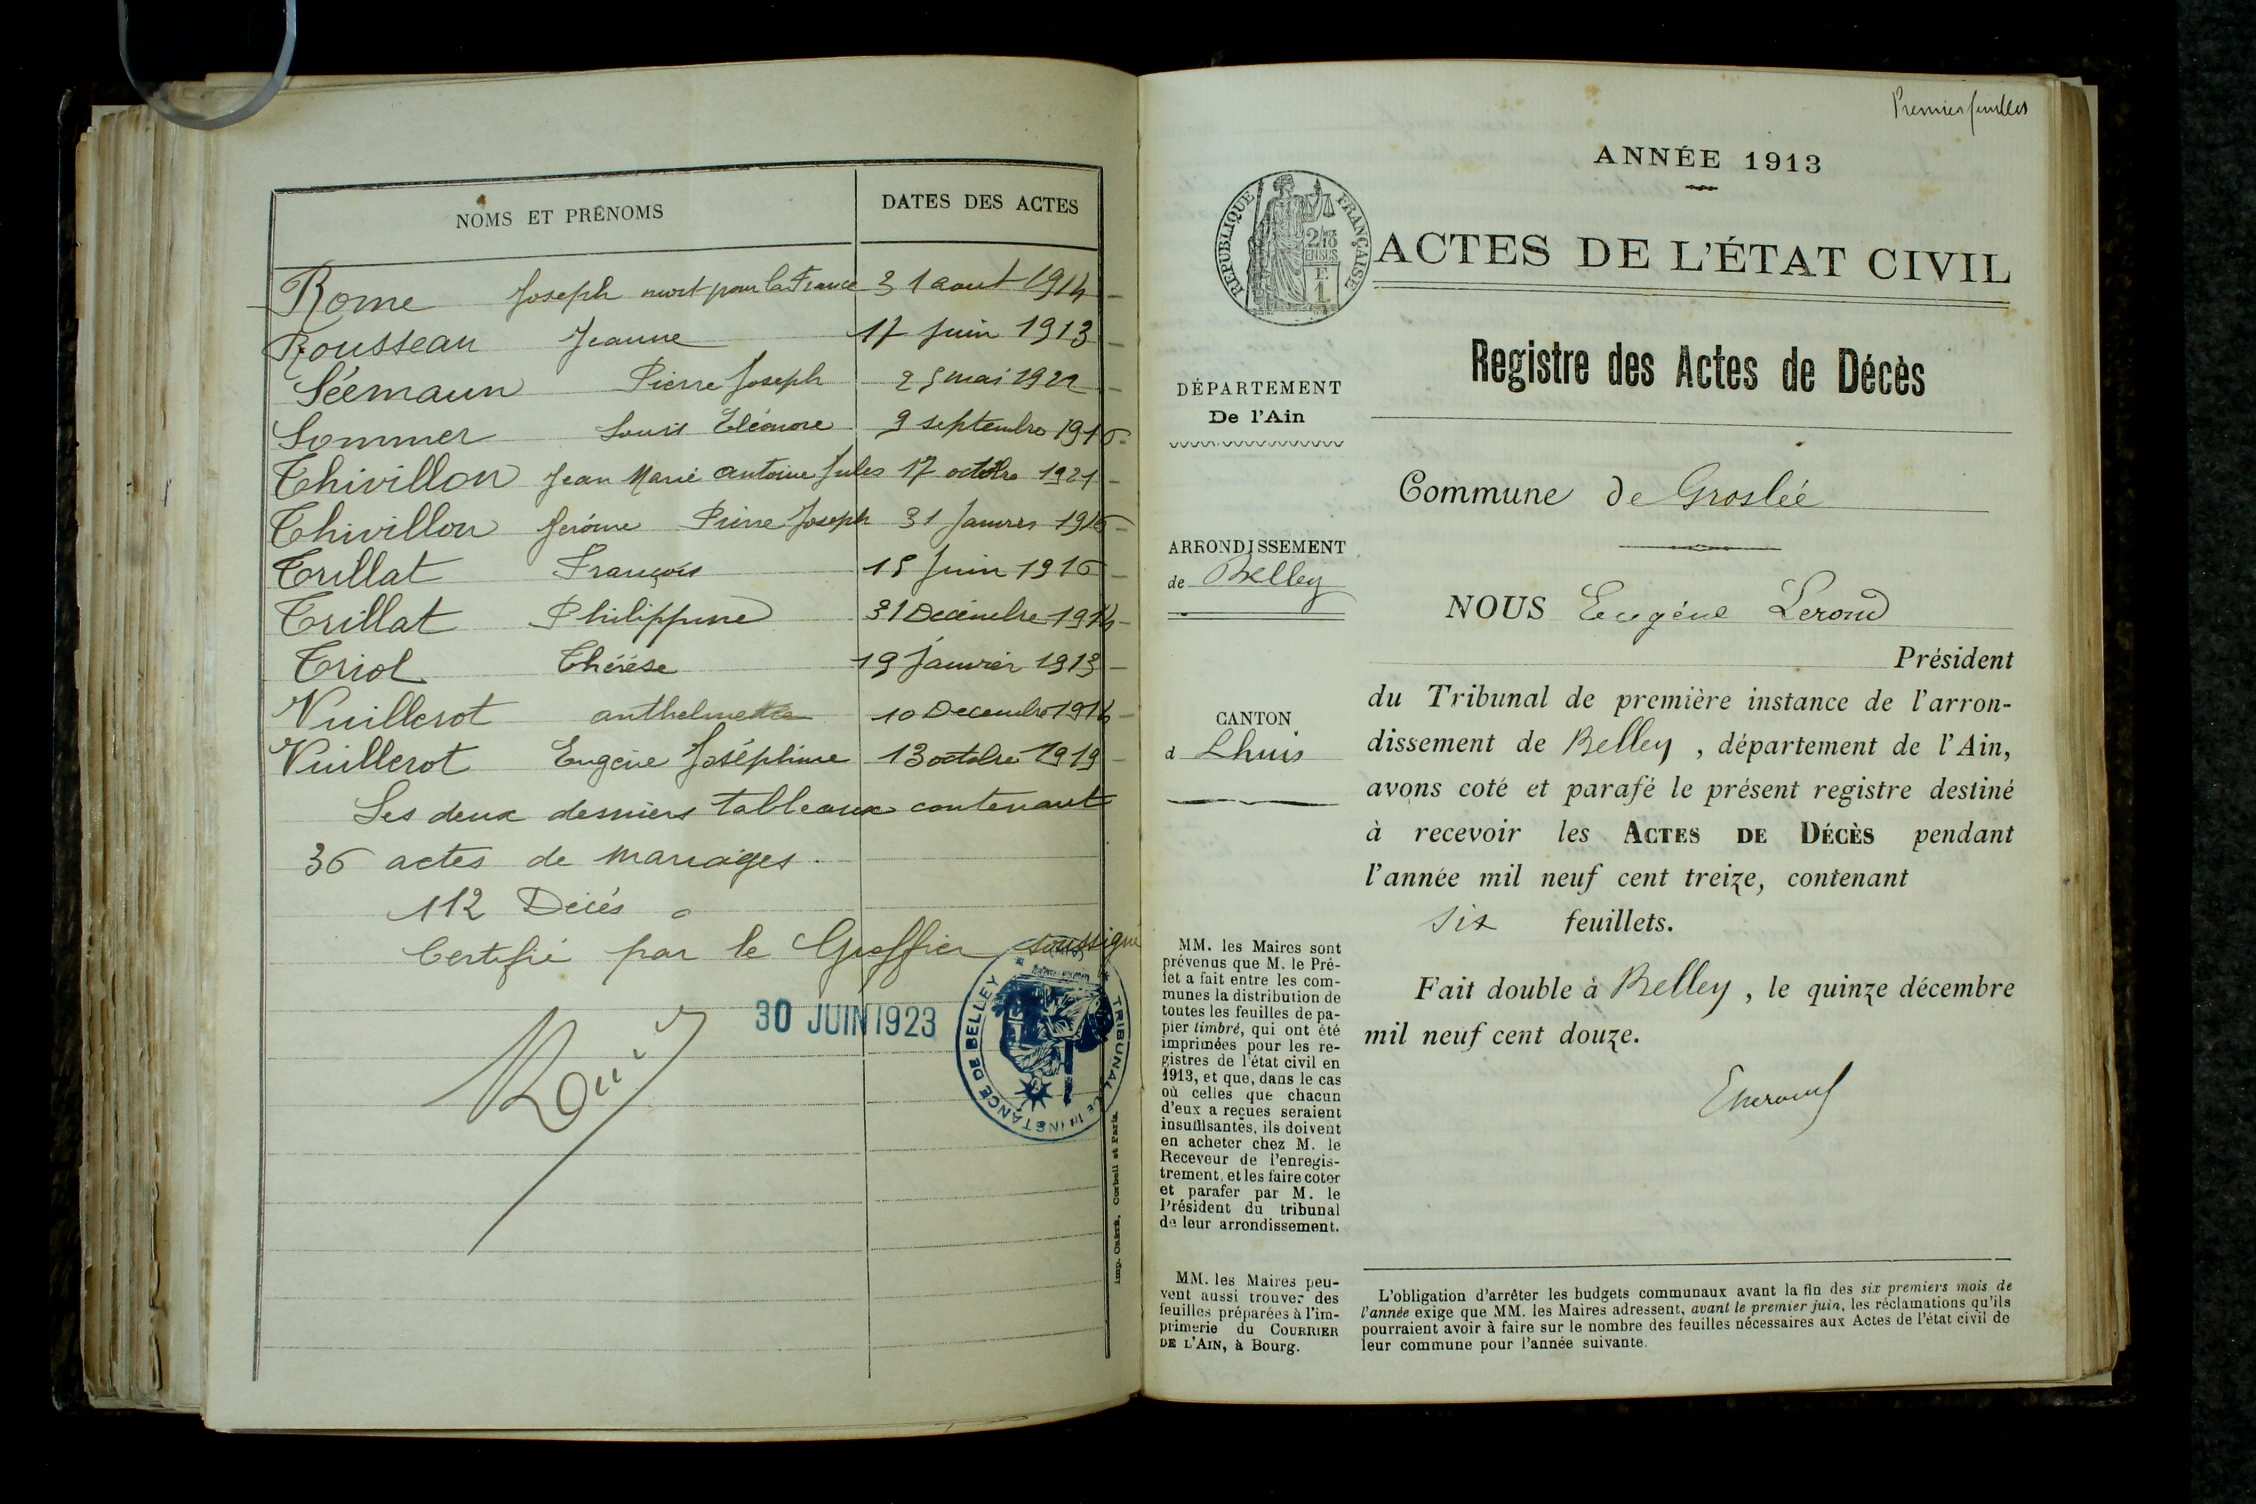 NOMS ET PRÉNOMS
DATES DES ACTES
Rome Joseph mort pour la France 31 aout 1914
Rousseau Jeanne 17 Juin 1913
Séemaun Pierre Joseph 25 mai 1922
Sommer Louis Eléonore 9 septembre 1916
Thivillon Jean Marie antoine Jules 17 octobre 1921
Thivillon Jerôme Pierre Joseph 31 Janvier 1916
Trillat François 15 Juin 1916
Trillat Philippine 31 Decembre 1914
Triol Thérèse 19 Janvier 1913
Vuillerot anthelmette 10 Decembre 1914
Vuillerot Eugène Joséphine 13 octobre 1919
Les deux derniers tableaux contenant
36 actes de mariages.
112 Décés
Certifié par le Greffier soussigné
30 JUIN 1923
TRIBUNAL DE 1re INSTANCE DE BELLEY
Imp. CRÉTÉ, Corbeil et Paris.
Premier feuillet
ANNÉE 1913
RÉPUBLIQUE FRANÇAISE
2/10
EN SUS
ACTES DE L'ÉTAT CIVIL
Registre des Actes de Décès
DÉPARTEMENT
De l'Ain
Commune de Groslée
ARRONDISSEMENT
de Belley
NOUS Eugéne Lerond
Président
du Tribunal de première instance de l'arron-
dissement de Belley, département de l'Ain,
avons coté et parafé le présent registre destiné
à recevoir les ACTES DE DÉCÈS pendant
l'année mil neuf cent treize, contenant
six feuillets.
Fait double à Belley, le quinze décembre
mil neuf cent douze.
CANTON
d Lhuis
MM. les Maires sont
prévenus que M. le Pré-
fet a fait entre les com-
munes la distribution de
toutes les feuilles de pa-
pier timbré, qui ont été
imprimées pour les re-
gistres de l'état civil en
1913, et que, dans le cas
où celles que chacun
d'eux a reçues seraient
insuffisantes, ils doivent
en acheter chez M. le
Receveur de l'enregis-
trement, et les faire coter
et parafer par M. le
Président du tribunal
de leur arrondissement.
MM. les Maires peu-
vent aussi trouver des
feuilles préparées à l'im-
primerie du COURRIER
DE L'AIN, à Bourg.
L'obligation d'arrêter les budgets communaux avant la fin des six premiers mois de
l'année exige que MM. les Maires adressent, avant le premier juin, les réclamations qu'ils
pourraient avoir à faire sur le nombre des feuilles nécessaires aux Actes de l'état civil de
leur commune pour l'année suivante.